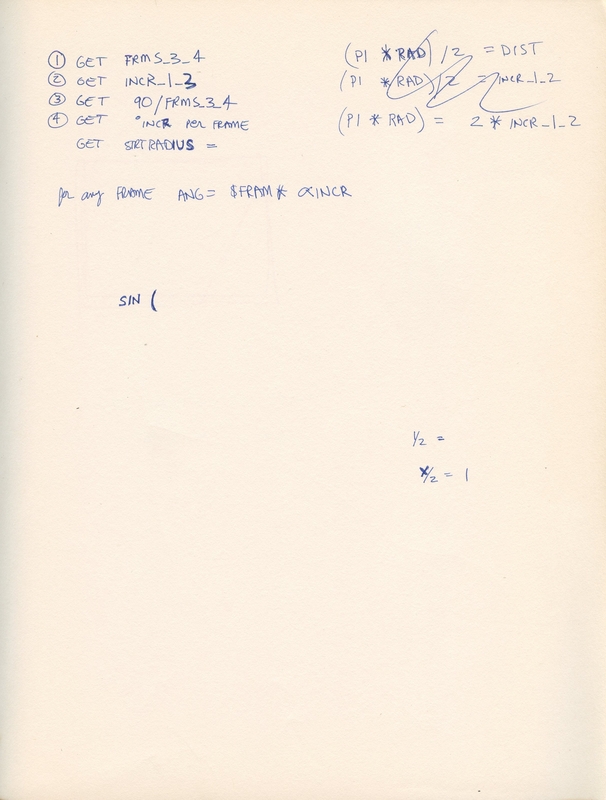 ① GET FRMS_3_4
② GET INCR_1_3
③ GET 90/FRMS_3_4
④ GET °INCR PER FRAME
GET STRTRADIUS =
(PI * RAD) / 2 = DIST
(PI * RAD) / 2 = INCR_1_2
(PI * RAD) = 2 * INCR_1_2
for any FRAME ANG = $FRAM * ∝INCR
SIN (
1/2 =
x/2 = 1